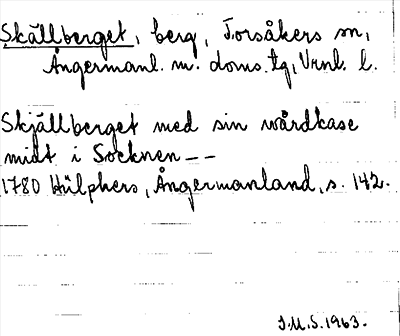 Skällberget, berg, Torsåkers sn,
Ångermanl. m. doms. tg, Vrnl. l.
Skjällberget med sin wårdkase
midt i Socknen--
1780 Hülphers, Ångermanland, s. 142.
J.M.S. 1963.